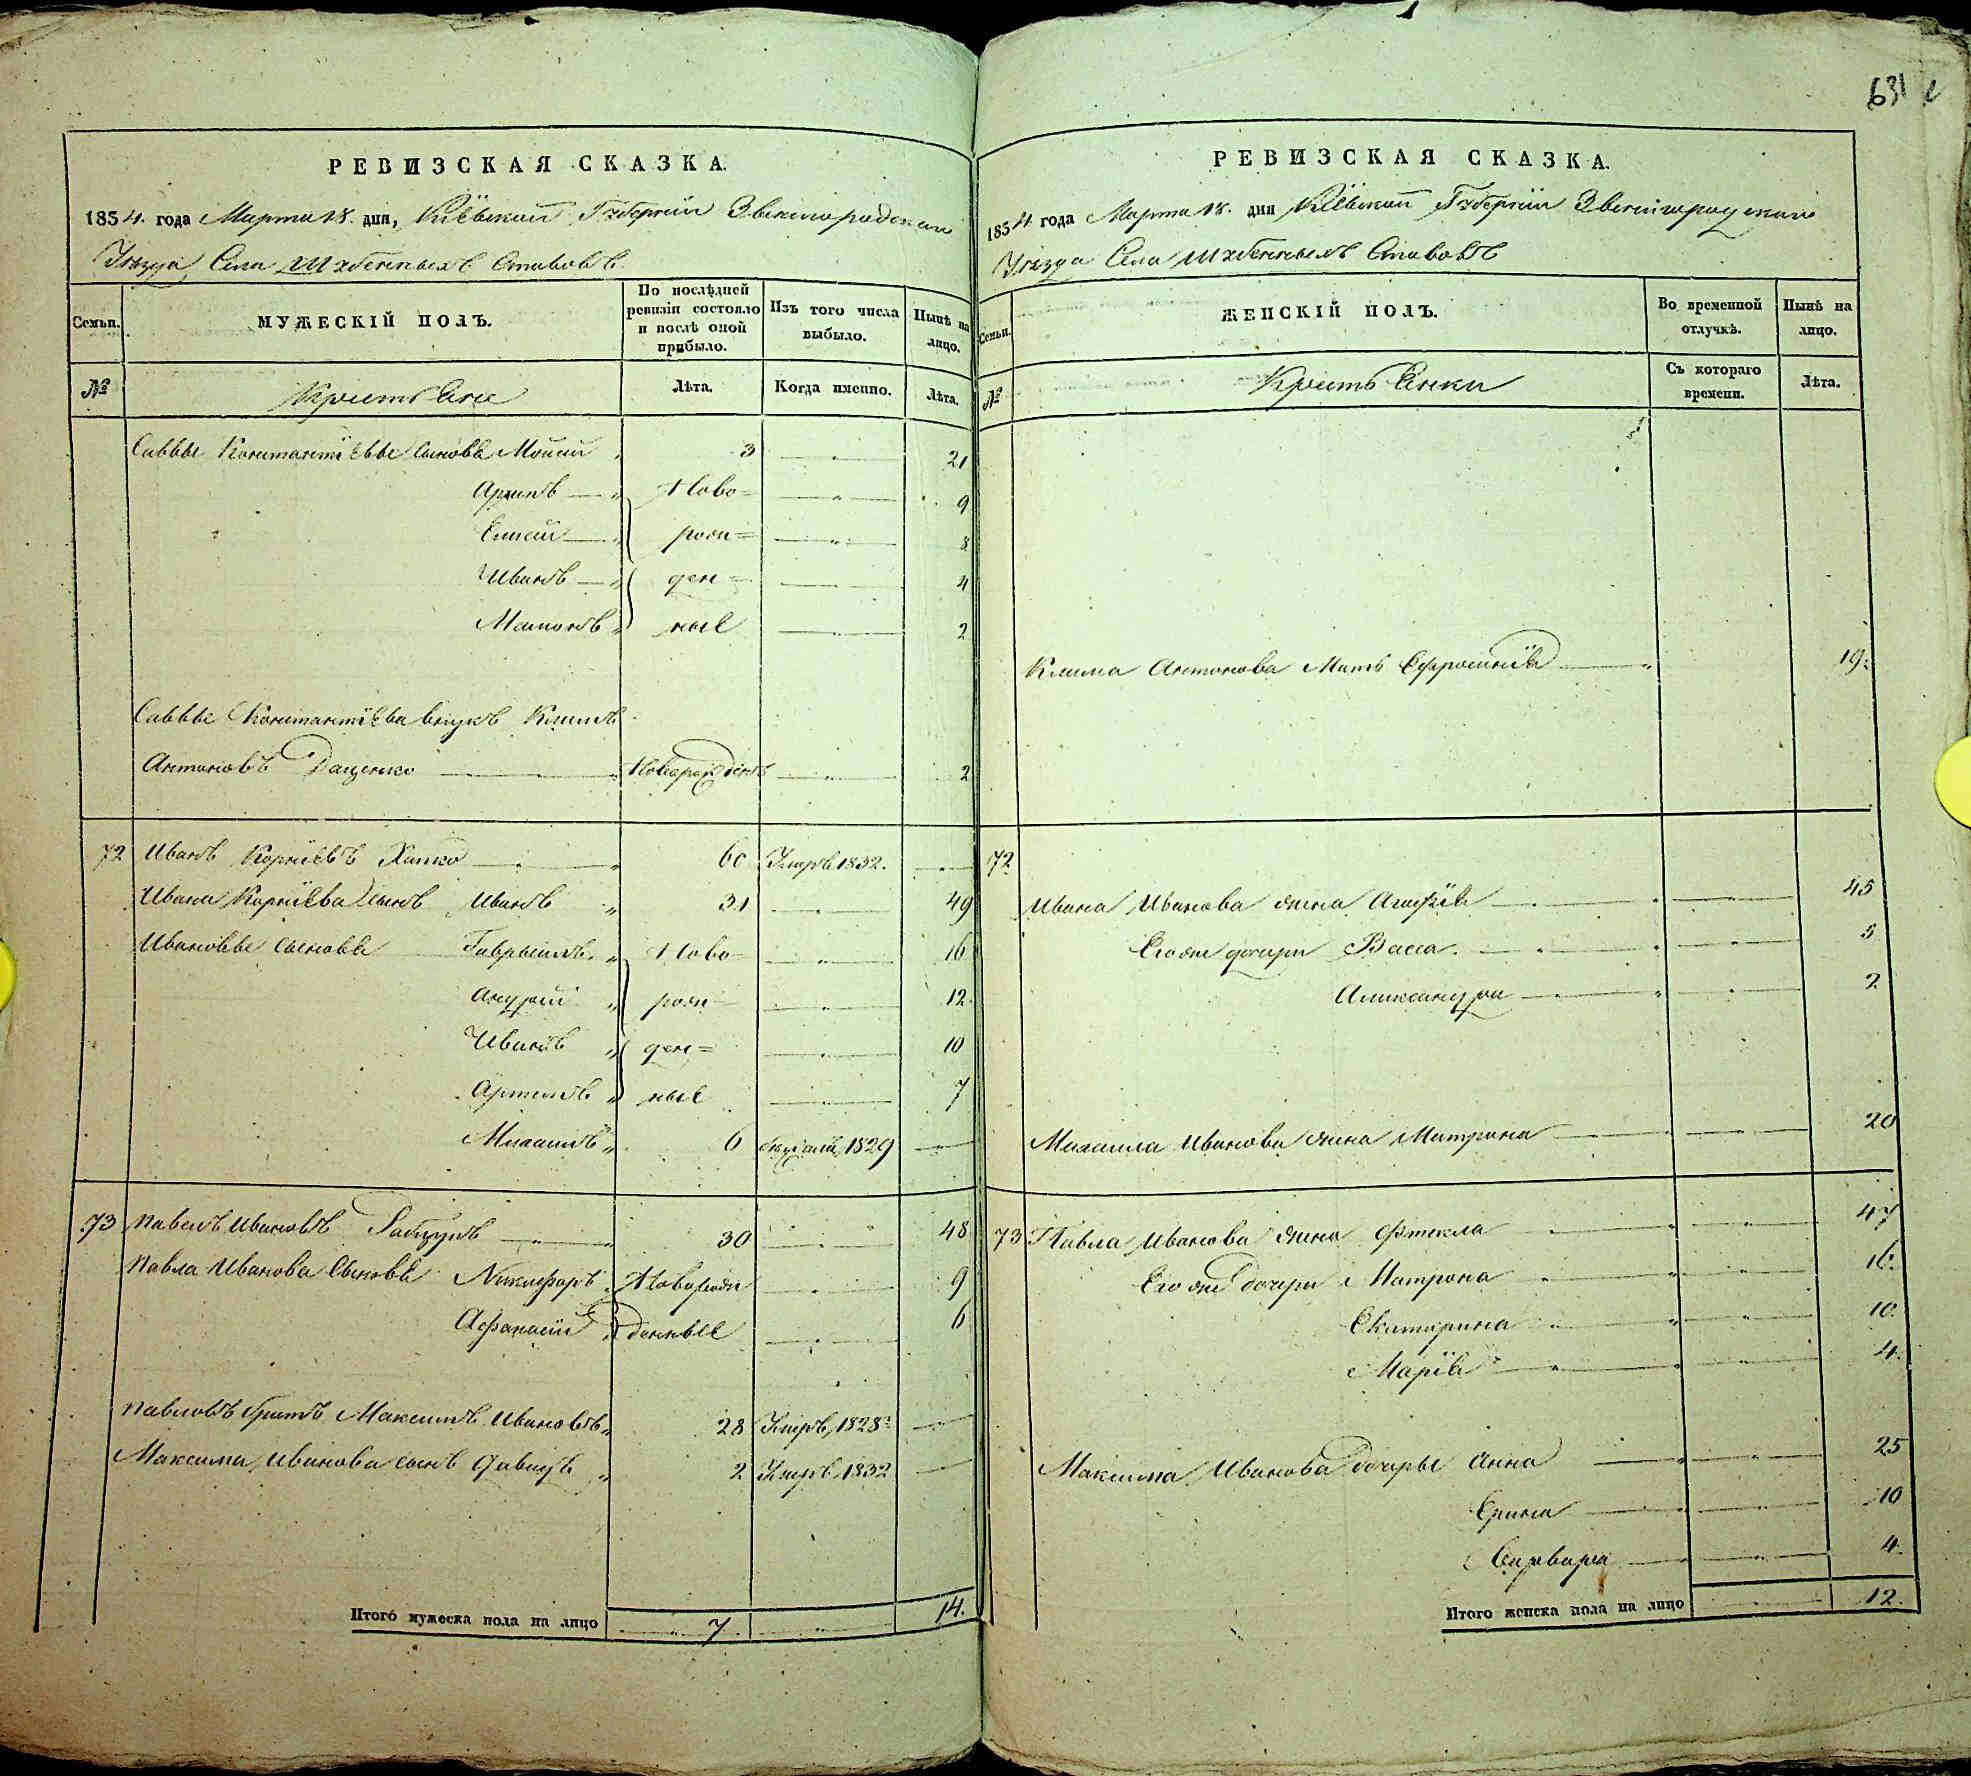 631
РЕВИЗСКАЯ СКАЗКА.
1854 года Марта 18. дня, Кіевской Губерніи Звенигородскаго
Уѣзда Села Шубенныхъ Ставовъ
Семьи.
МУЖЕСКІЙ ПОЛЪ.
По послѣдней ревизіи состояло и послѣ оной прибыло.
Изъ того числа выбыло.
Нынѣ на лицо.
№
Крестьяне
Лѣта.
Когда именно.
Лѣта.
Саввы Константіевы сыновья Мойсей 3 21
Архипъ Ново= 9
Елисей рож= 8
Иванъ ден= 4
Мамонтъ ные 2
Саввы Константіева внукъ Климъ
Антоновъ Даценко Новорожденъ 2
72 Иванъ Корніевъ Хитко 60 Умеръ 1832.
Ивана Корніева сынъ Иванъ 31 49
Ивановы сыновья Гаврыилъ Ново= 16
Андрей рож= 12
Иванъ ден= 10
Артемъ ные 7
Михаилъ 6 1829
73 Павелъ Ивановъ 30 48
Павла Иванова сыновья Никифоръ Новорож 9
Афанасій денные 6
Павловъ братъ Максимъ Ивановъ 28 Умеръ, 1828
Максима Иванова сынъ Давидъ 2 Умеръ, 1832
Итого мужеска пола на лицо 7 14.
РЕВИЗСКАЯ СКАЗКА.
1854 года Марта 18. дня Кіевской Губерніи Звенигородскаго
Уѣзда Села Шубенныхъ Ставовъ
Семьи.
ЖЕНСКІЙ ПОЛЪ.
Во временной отлучкѣ.
Нынѣ на лицо.
№
Крестьянки
Съ котораго времени.
Лѣта.
Клима Антонова Мать Ефросинія 19.
72
Ивана Иванова жена Агафія 45
Его же дочери Васса. 5
Александра 2
Михаила Иванова жена Матрона 20
73 Павла Иванова жена Фтекла 47
Его же дочери Матрона 16.
Екатерина 10.
Марія 4.
Максима Иванова дочеры Анна 25
Ерина 10
Варвара 4.
Итого женска пола на лицо 12.